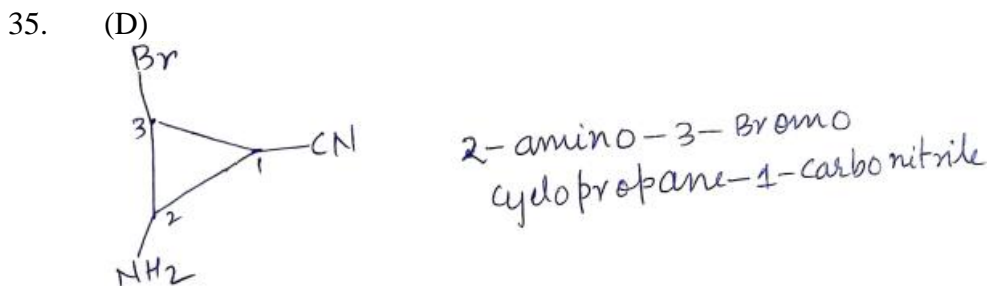 35. (D)
Br
3
1
-CN
2
NH2
2-amino-3-Bromo
cyclopropane-1-carbonitrile